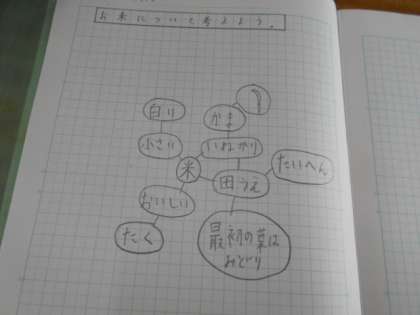 お米について考えよう。
白い
かま
小さい
いねかり
米
田うえ
たいへん
おいしい
たく
最初の葉は
みどり